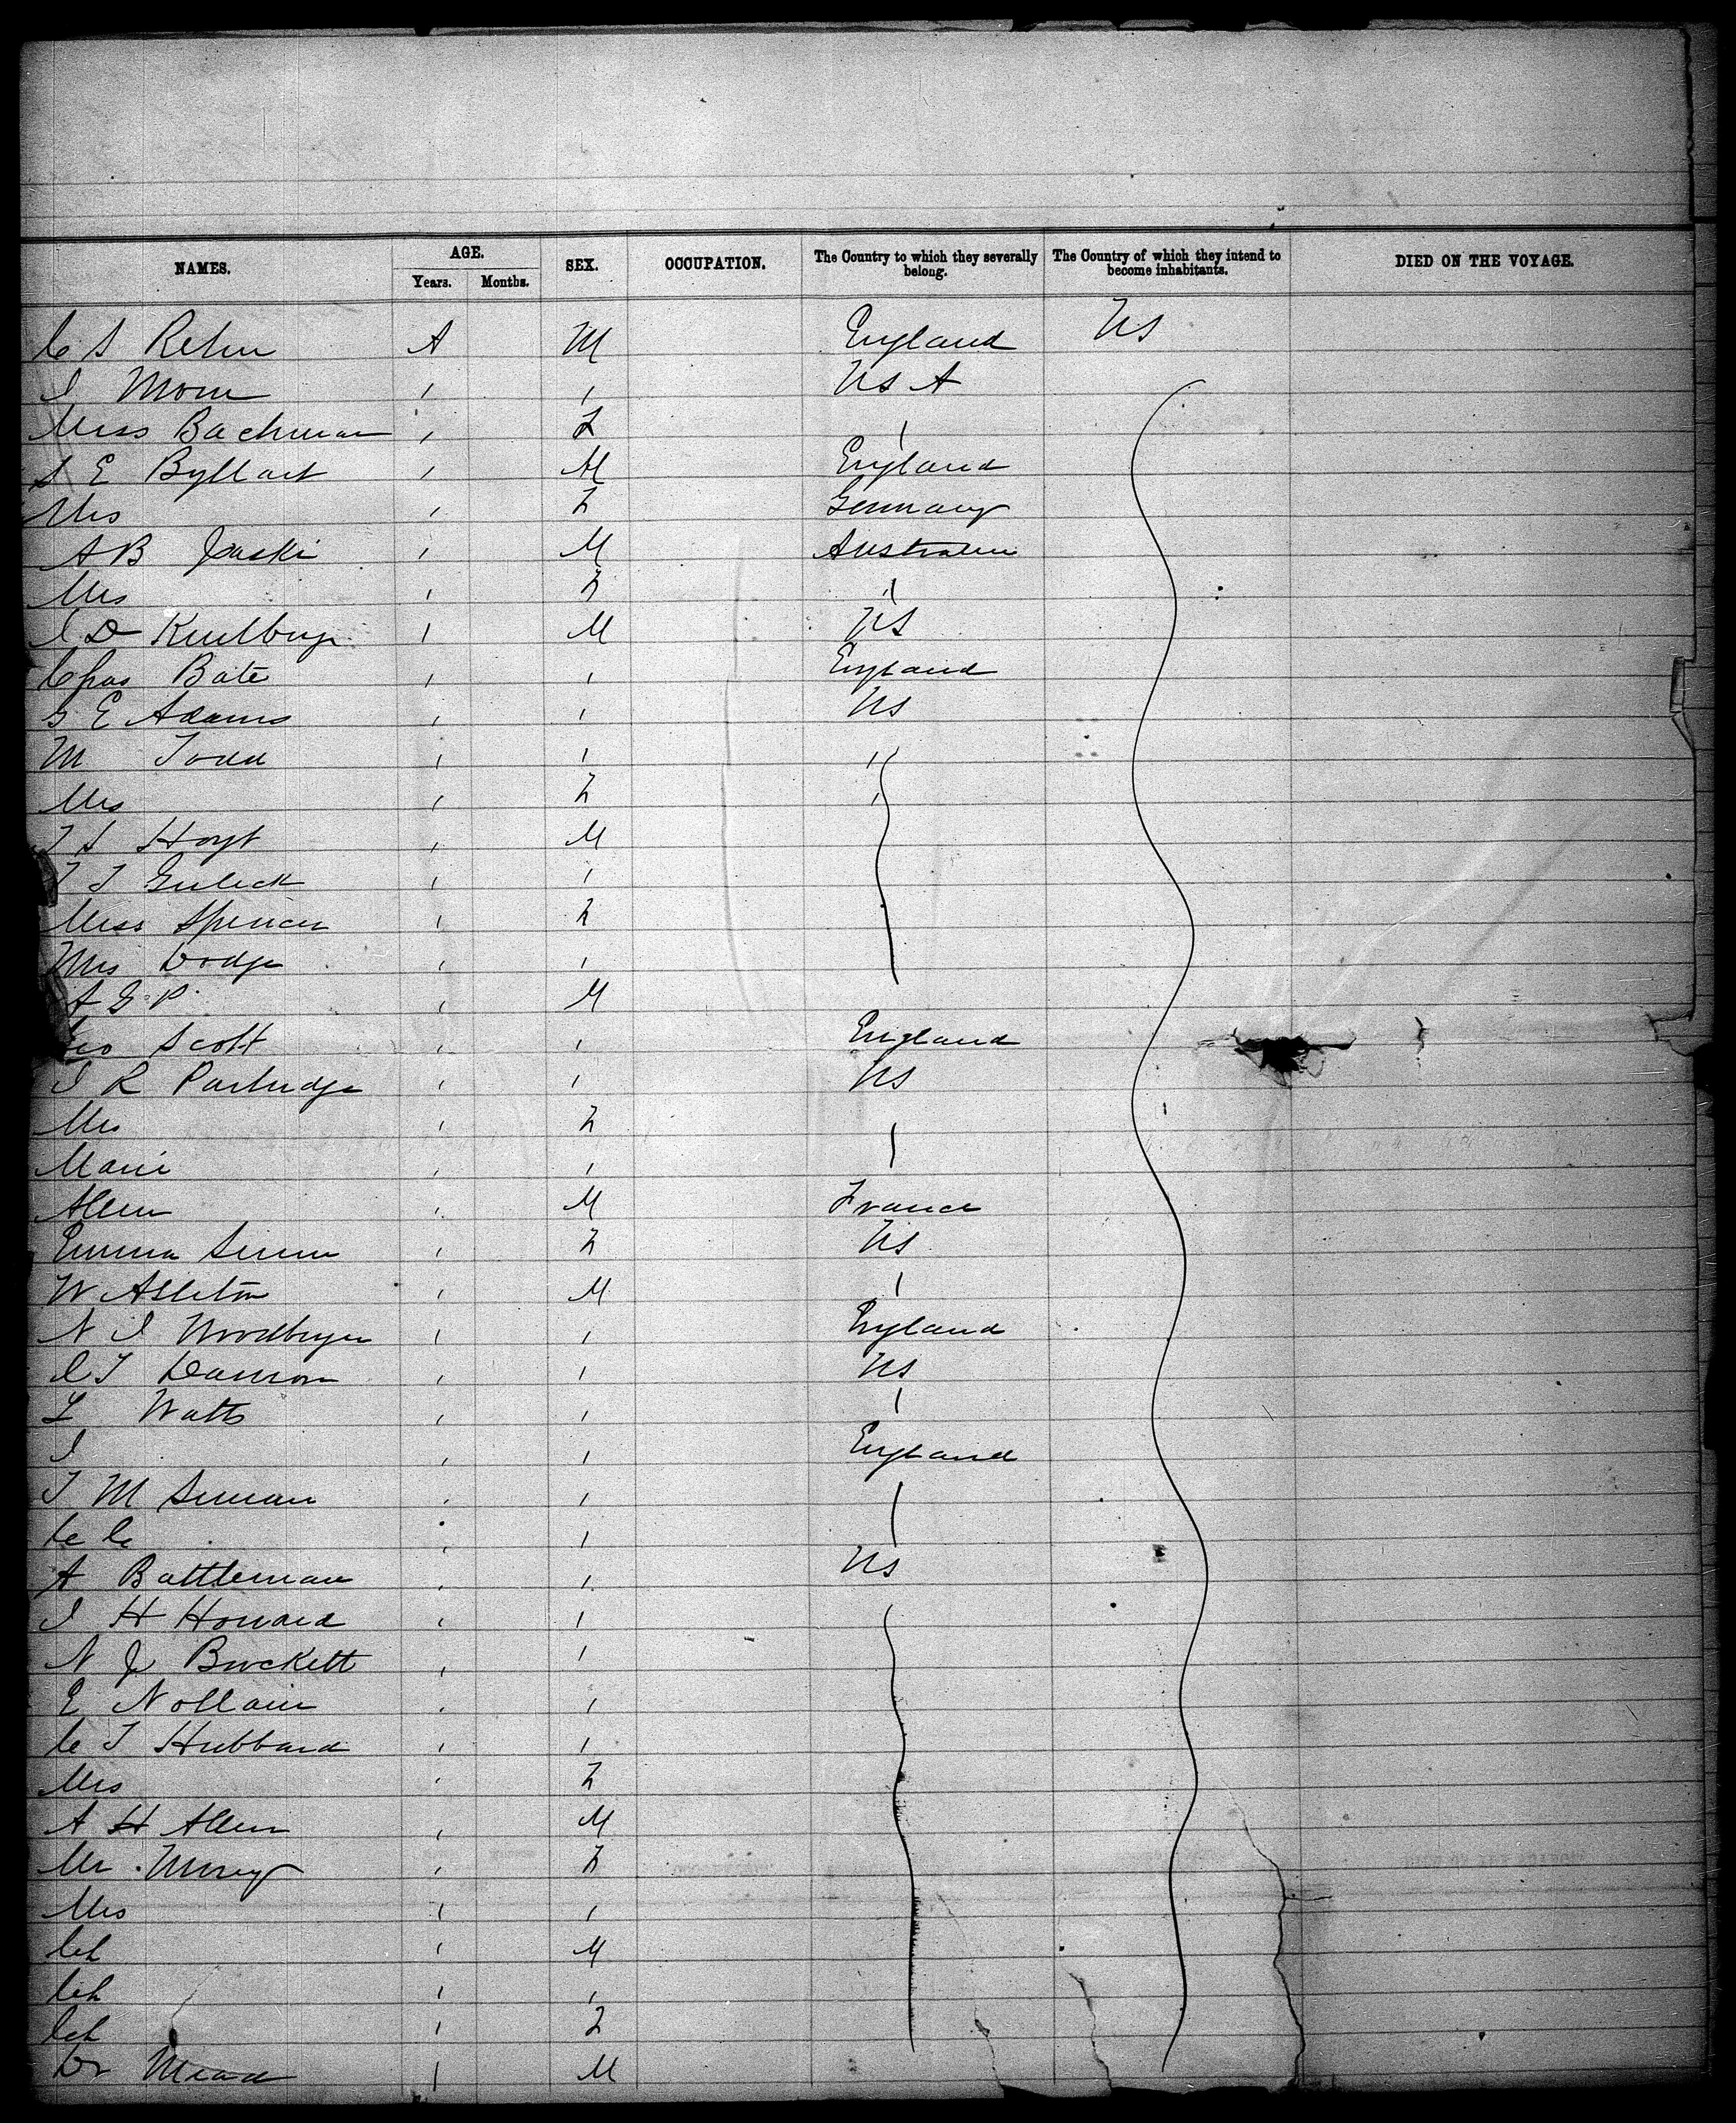 NAMES. AGE. Years. Months. SEX. OCCUPATION. The Country to which they severally belong. The Country of which they intend to become inhabitants. DIED ON THE VOYAGE.
C S Rehm A M England US
J Morn " " US A
Miss Bachman " F "
S E Byllart " M England
Mrs " F Germany
A B Jaski " M Australia
Mrs " F "
M US
Chas Bate " " England
G E Adams " " US
M Todd " " "
Mrs " F "
T S Hoyt " M
T J Gulick " "
Miss Spencer " F
Mrs Dodge " "
A G P " M
Geo Scott " " England
J R Partridge " " US
Mrs " F
Marie " "
Allen " M France
Emma " F US
W Alleton " M "
N J " " England
C T Damon " " US
L Watts " " "
J " " England
T M Seman " "
C C " "
A Battleman " " US
J H Howard " "
N J Burckett " "
E Nollain " "
C T Hubbard " "
Mrs " F
A H Allen " M
Mr Morey " F
Mrs " "
Ch " M
Ch " "
Ch " F
Dr Mead " M